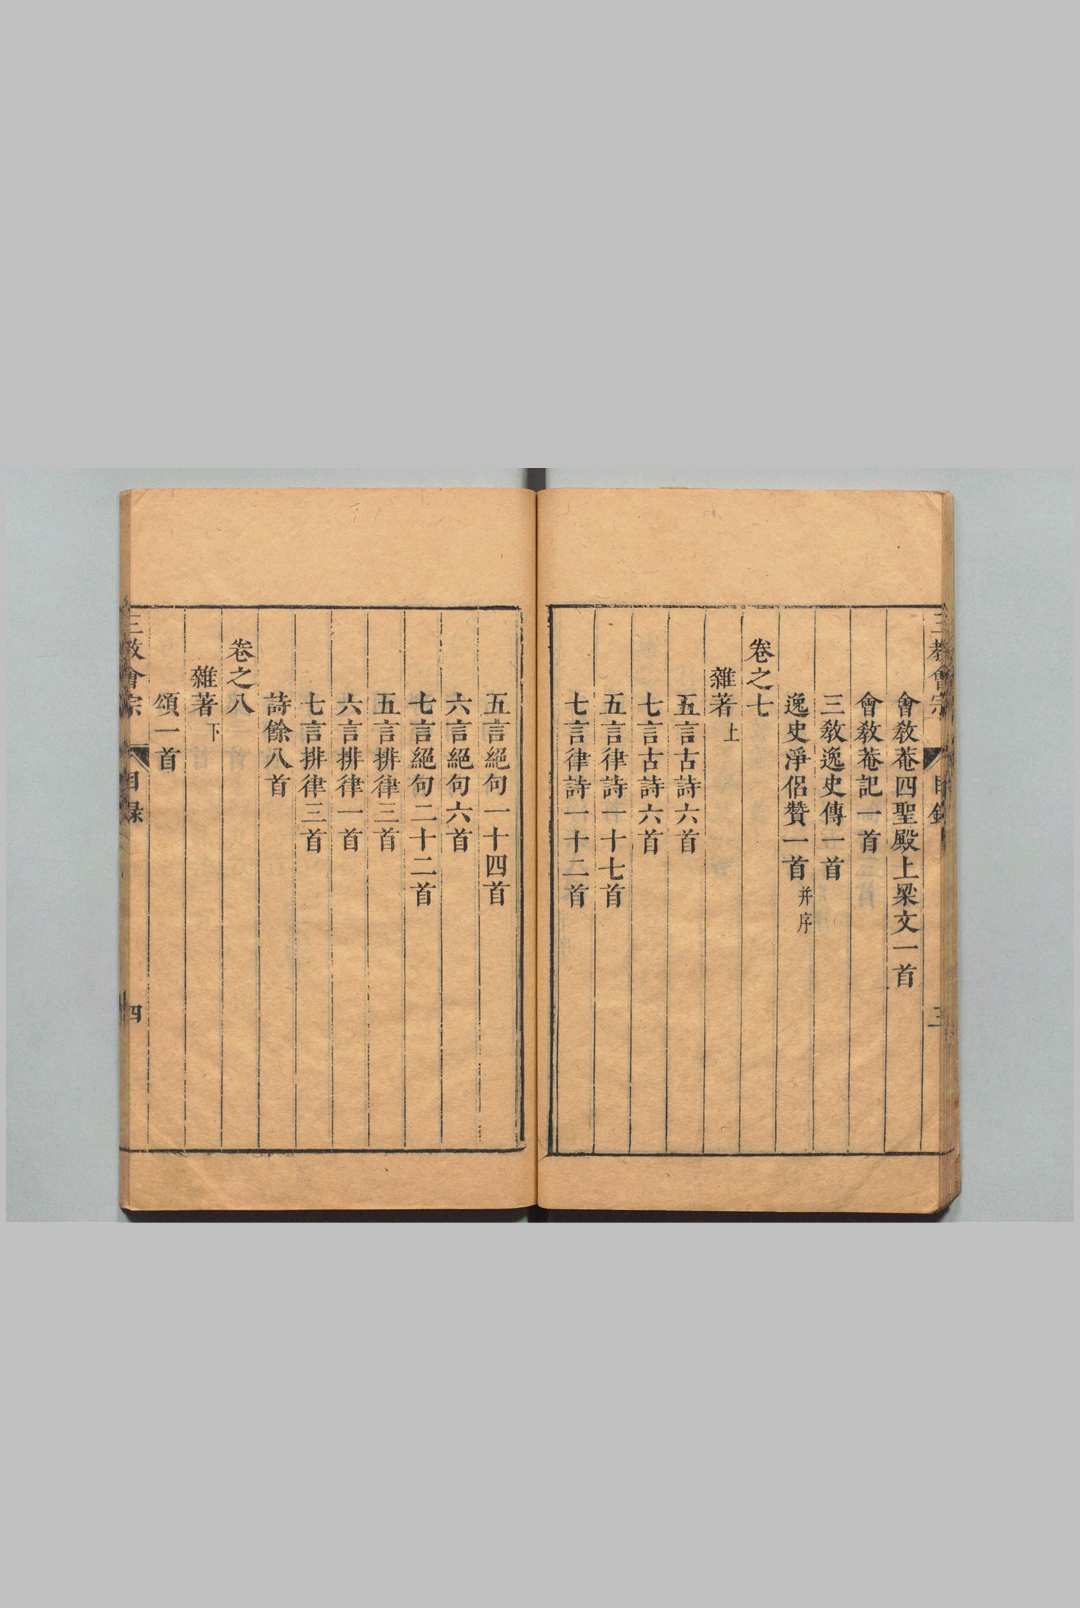 三教會宗 目錄 三
會教菴四聖殿上梁文一首
會教菴記一首
三教逸史傳一首
逸史淨侶贊一首 并序
卷之七
雜著 上
五言古詩六首
七言古詩六首
五言律詩一十七首
七言律詩一十二首
五言絕句一十四首
六言絕句六首
七言絕句二十二首
五言排律三首
六言排律一首
七言排律三首
詩餘八首
卷之八
雜著 下
頌一首
三教會宗 目錄 四